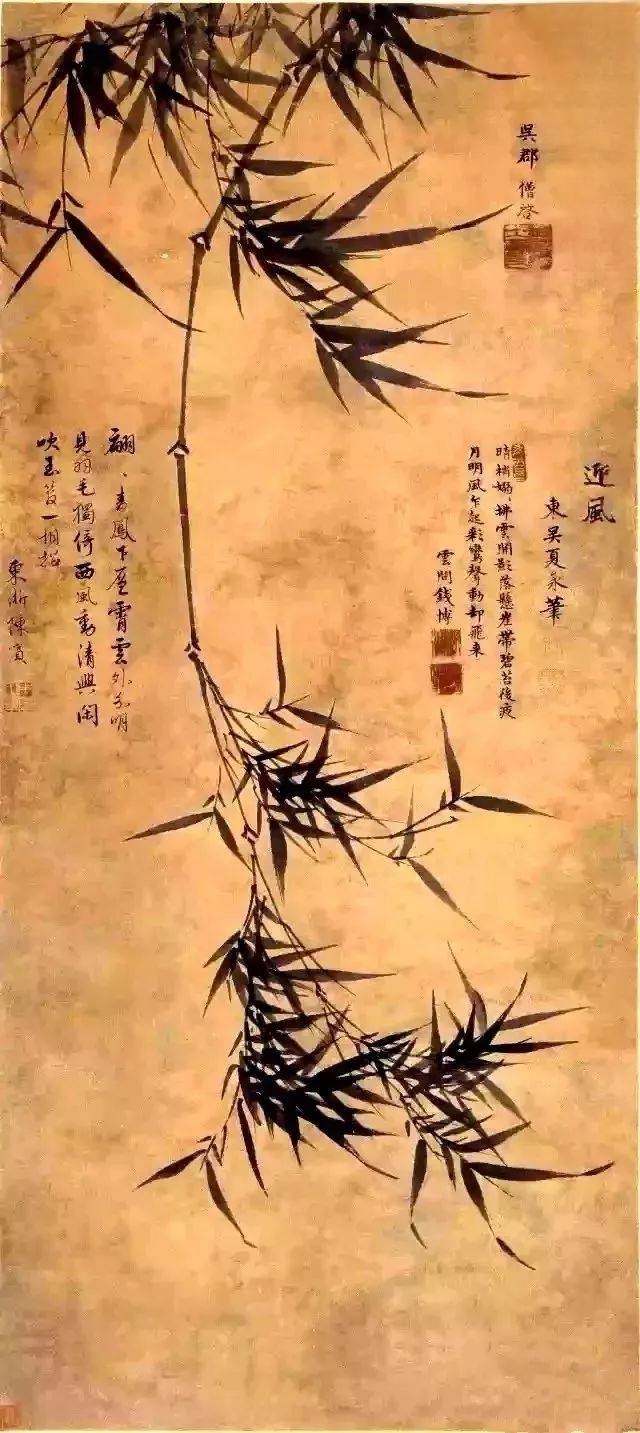 吳郡 僧啓
迎風
東吳夏永筆
晴梢嫋、拂雲開影落懸崖帶碧苔後夜
月明風乍起彩鸞聲動却飛來
雲間錢博
翩、青鳳下層霄雲外分明
見翎毛獨倚西風動清興閑
吹玉笛一相招
東浙陳